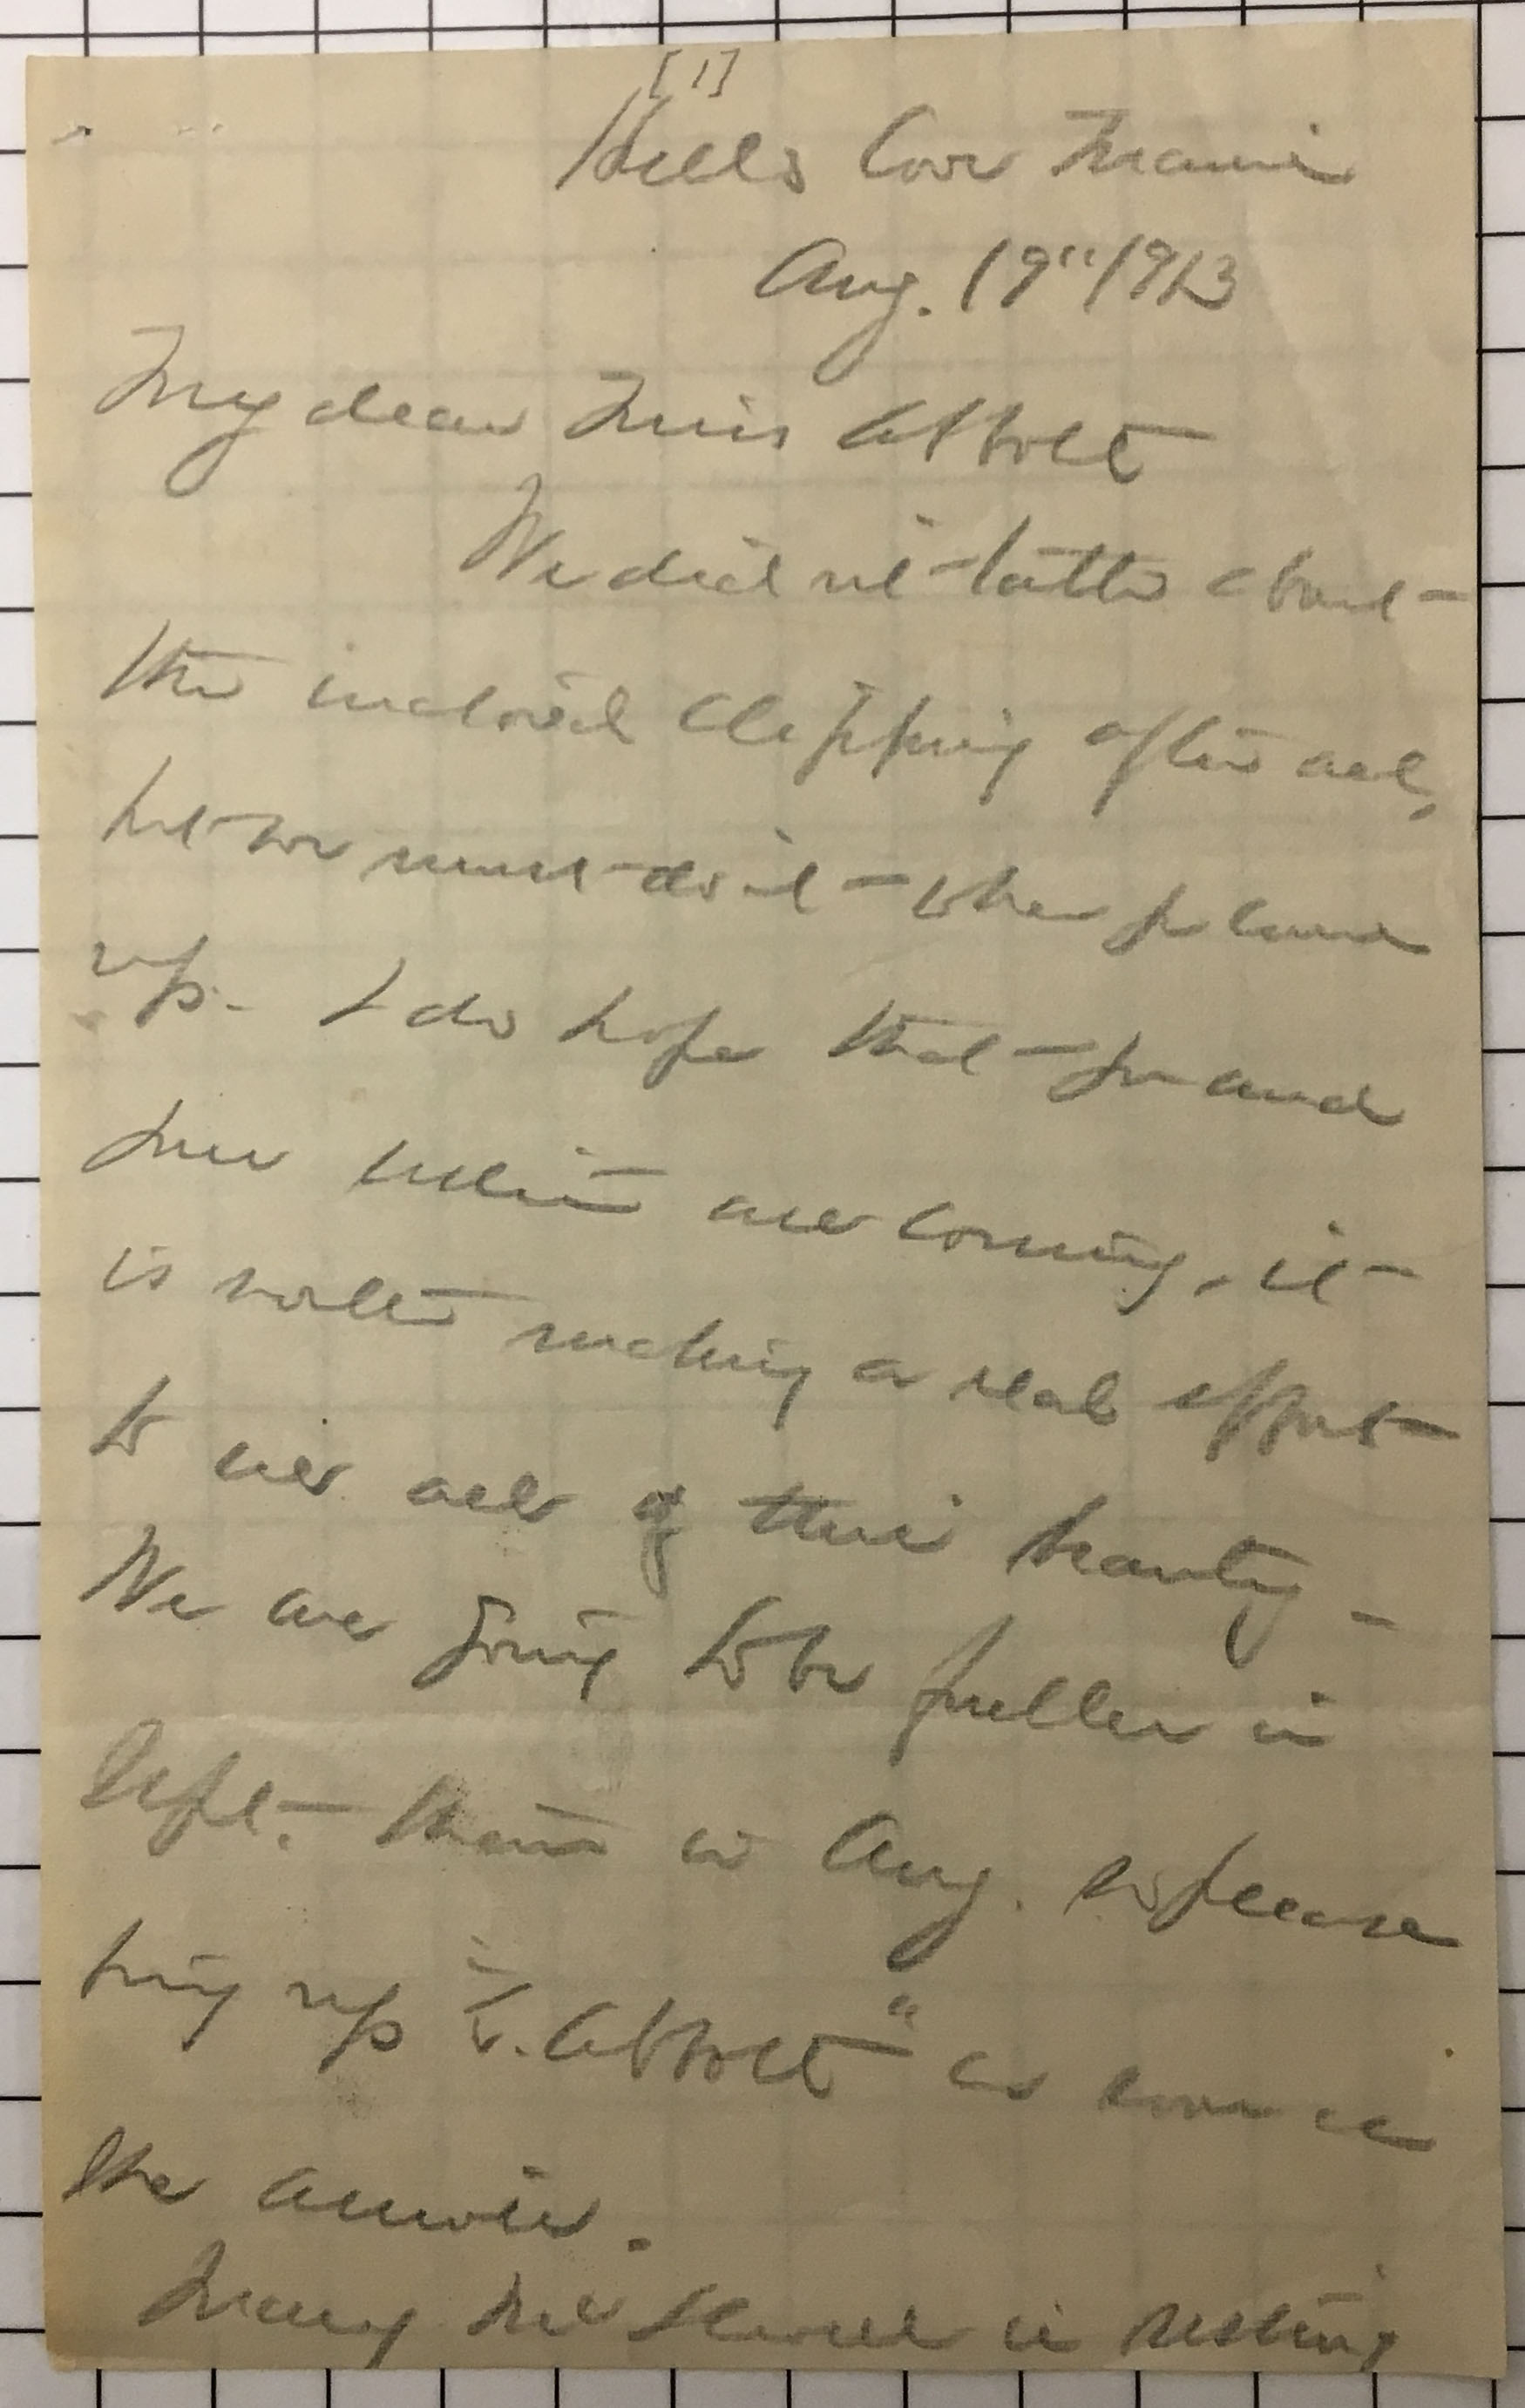 [1]
Hulls Cove Maine
Aug. 19" 1913
My dear Miss Abbott
We did not talk about
the inclosed clipping after all,
but we must do it when you come
up. I do hope that you and
your are coming, it
is worth making a real effort
to all of this beauty -
We are going to be fuller in
Sept. than in Aug. so please
bring up "G. Abbott" as soon as
the answer.
Mary is resting